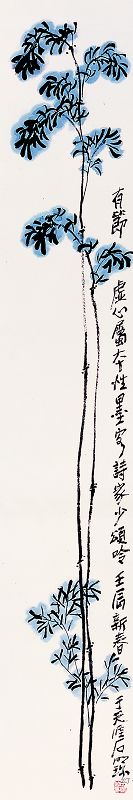 有節虛心屬本性墨客詩家少頌吟壬辰新春于天涯石